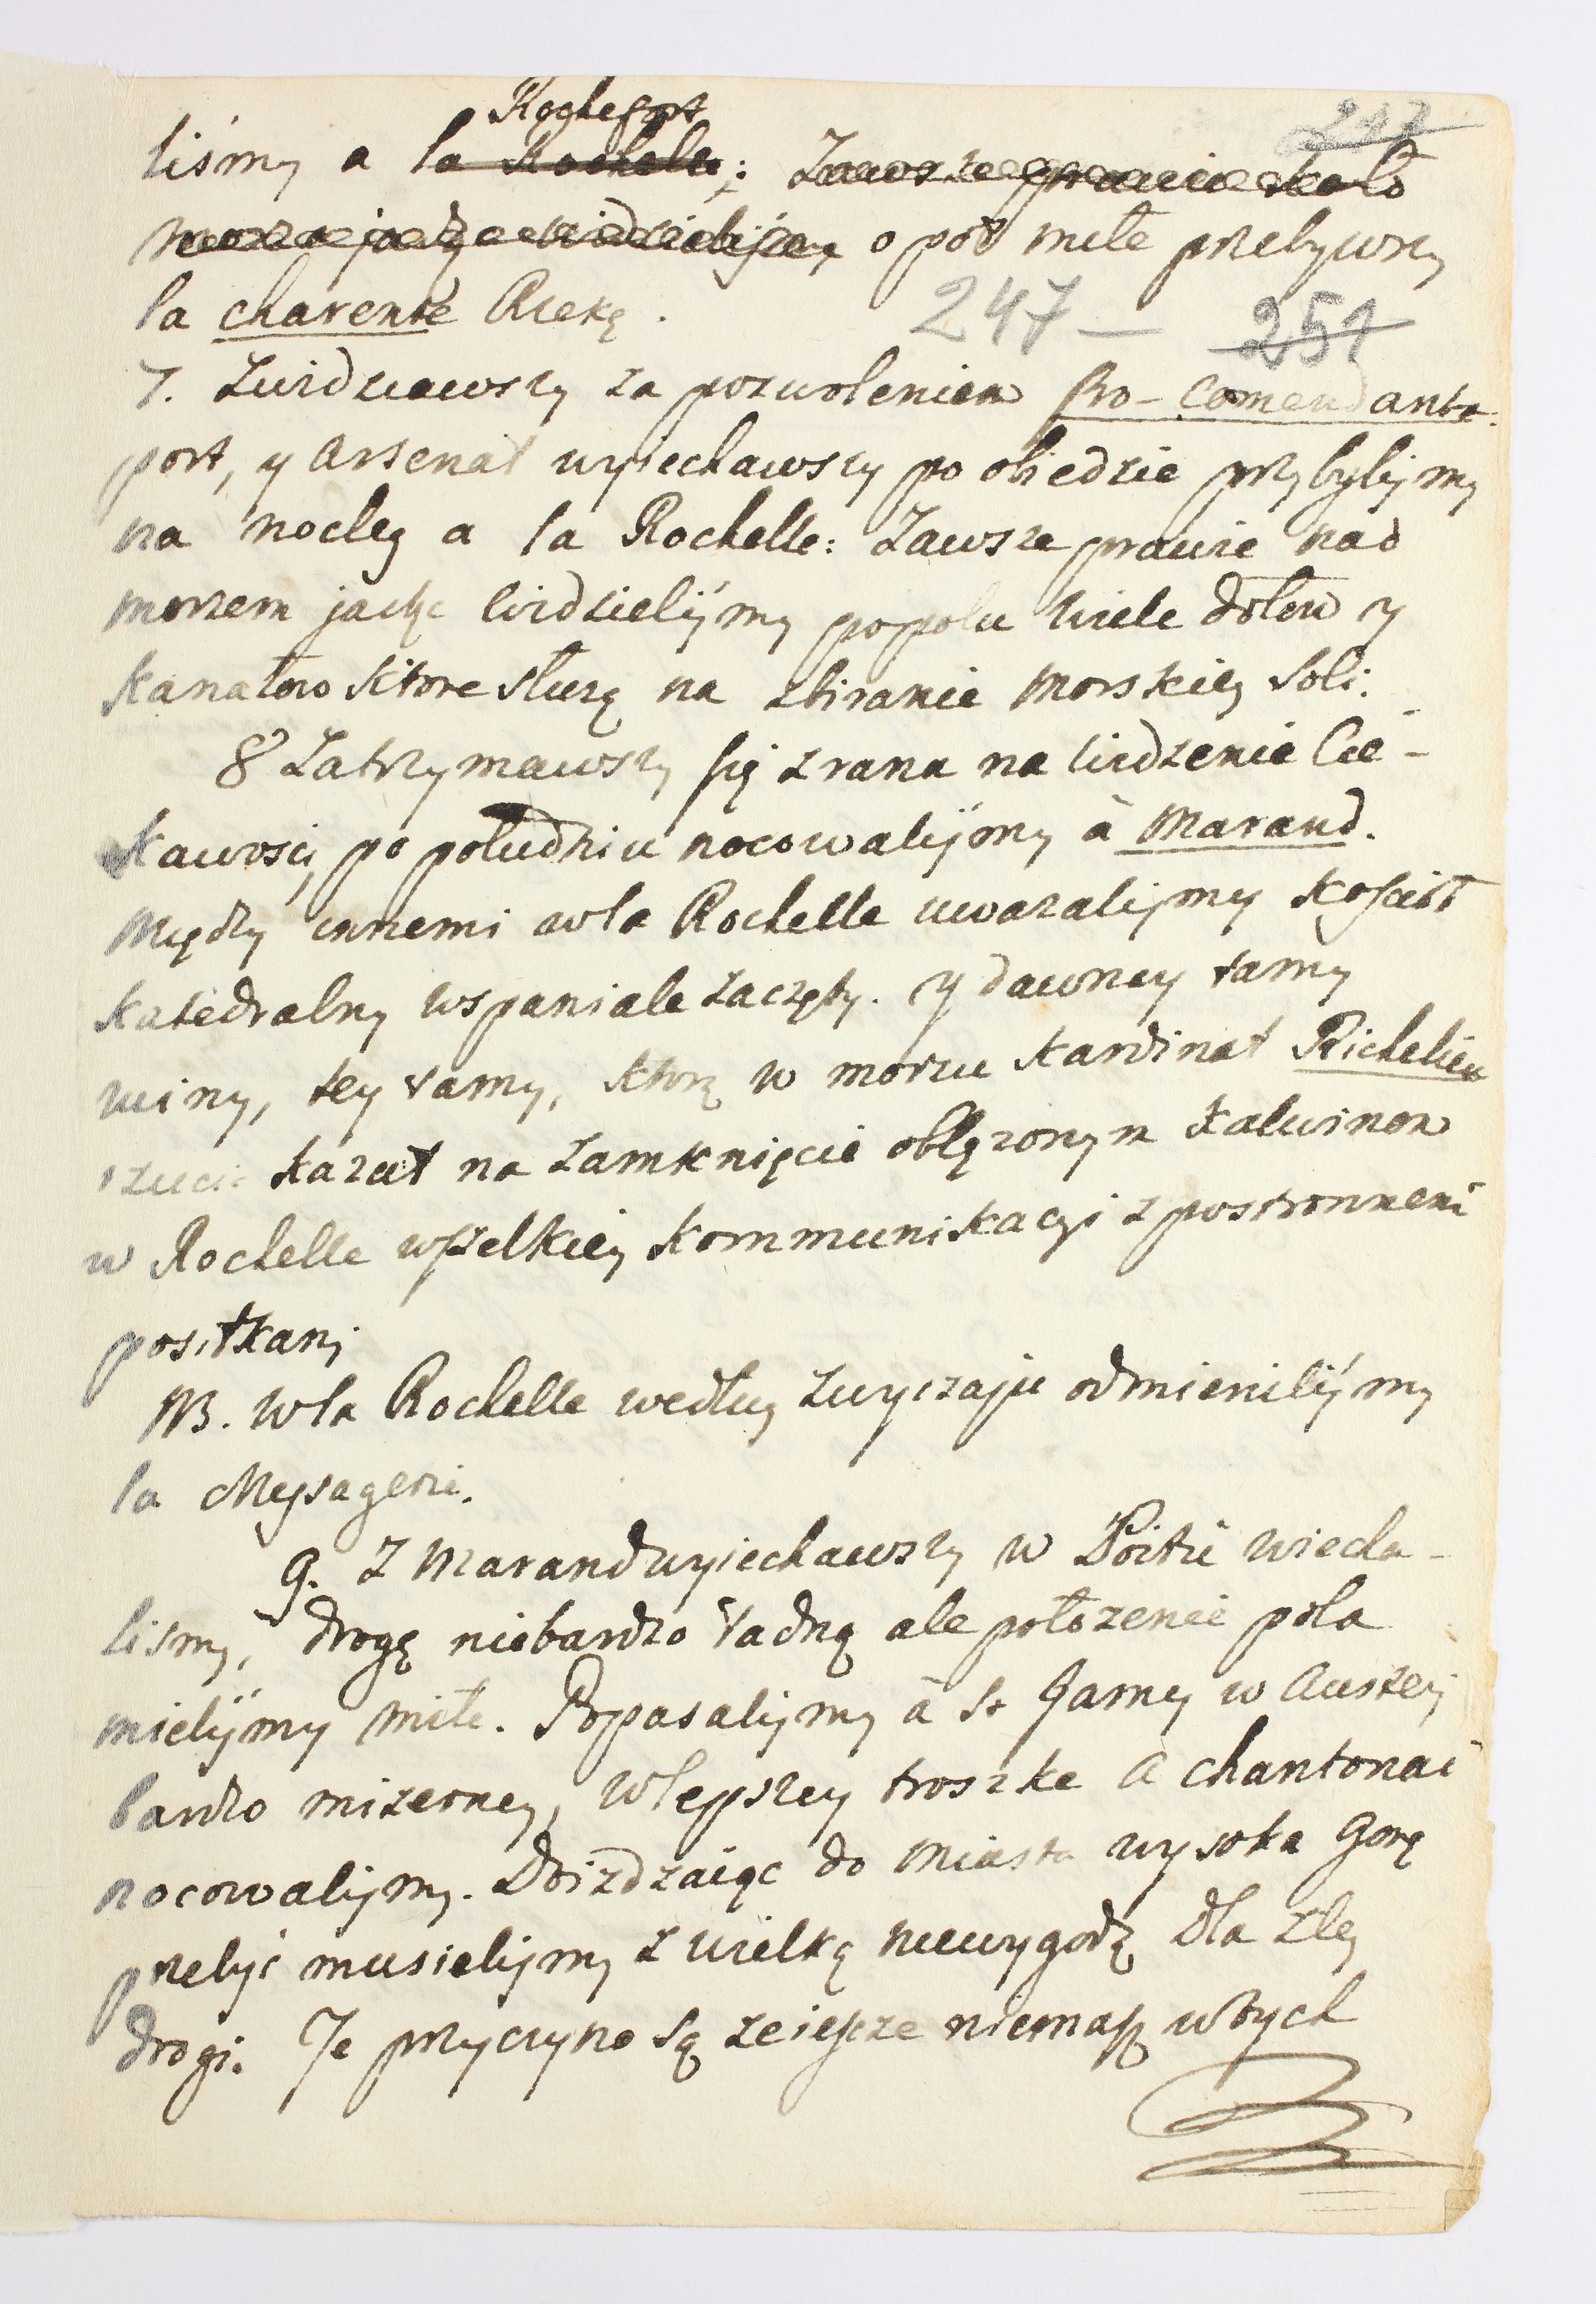 Rochefort
247
liśmy a la Rochelle; Zawsze prawie koło
morza jadąc widzielismy o poł mile przebywszy
la charente Rzekę.
247 — 251
7. Zwidzaewszy za pozwoleniem Pro-Comendanta
port, y Arsenał wyiechawszy po obiedzie przybylismy
na nocleg a la Rochelle: Zawsze prawie nad
morzem jadąc widzielismy popolu wiele dołow y
kanałow ktore służą na zbiranie morskiey Soli.
8 Zatrzymawszy się z rana na widzenie Cie-
kawości, po południu nocowalismy à Marand.
Między innemi w la Rochelle uważalismy kościoł
katedralny wspaniale zaczęty. y dawney tamy
ruiny, tey tamy, ktorą w morzu Kardinał Richelieu
rzucić kazał na zamknięcie oblężonym Kalwinom
w Rochelle wszelkiey kommunikacyi z postronnemi
posiłkami
NB. W la Rochelle według zwyczaju odmienilismy
la Messagerie.
9. Z Marand wyiechawszy w Poitu wiecha-
lismy, drogę niebardzo ładną ale położenie pola
mielismy miłe. Popasalismy à St Jamey w Austeryi
bardzo mizerney, w lepszey troszke a chantonai
nocowalismy. Doizdzaiąc do miasta wysoka Gorę
przebyć musielismy z wielką niewygodą dla złey
drogi. Te przyczyno są że ieszcze niemasz w tych